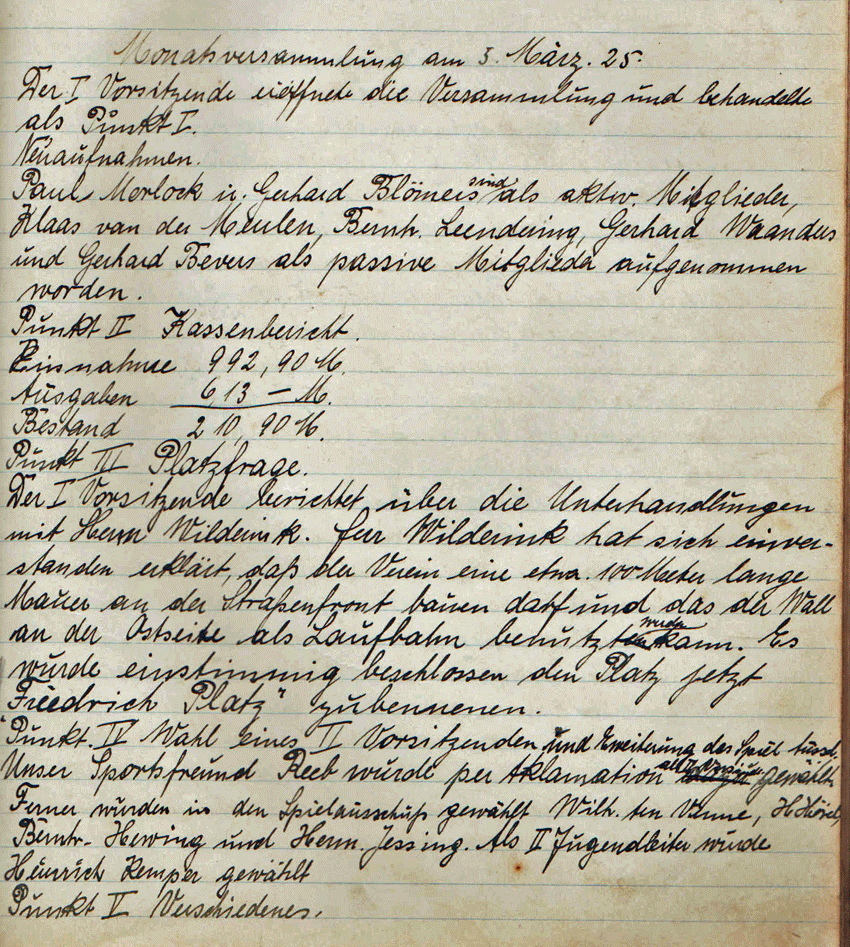 Monatsversammlung am 3. März. 25.
Der I Vorsitzende eröffnete die Versammlung und behandelte
als Punkt I.
Neuaufnahmen.
Paul Morlock u. Gerhard Blömers sind als aktiv. Mitglieder,
Klaas van der Meulen, Bernh. Leendering, Gerhard Waanders
und Gerhard Bevers als passive Mitglieder aufgenommen
worden.
Punkt II Kassenbericht.
Einnahme 992,90 M.
Ausgaben 613 — M.
Bestand 210,90 M.
Punkt III Platzfrage.
Der I Vorsitzende berichtet über die Unterhandlungen
mit Herrn Wilderink. Herr Wilderink hat sich einver-
standen erklärt, daß der Verein eine etwa. 100 Meter lange
Mauer an der Straßenfront bauen darf und das der Wall
an der Ostseite als Laufbahn benutzt werden kann. Es
wurde einstimmig beschlossen den Platz jetzt
"Friedrich Platz" zubennenen.
Punkt. IV Wahl eines II Vorsitzenden und Erweiterung des Spiel Aussch.
Unser Sportsfreund Reeb wurde per Aklamation als II Vorsitz. gewählt
Ferner wurden in den Spielausschuß gewählt Wilh. ten Venne, H.
Bernh. Hewing und Herm. Jessing. Als II Jugendleiter wurde
Heinrich Kemper gewählt
Punkt V Verschiedenes.